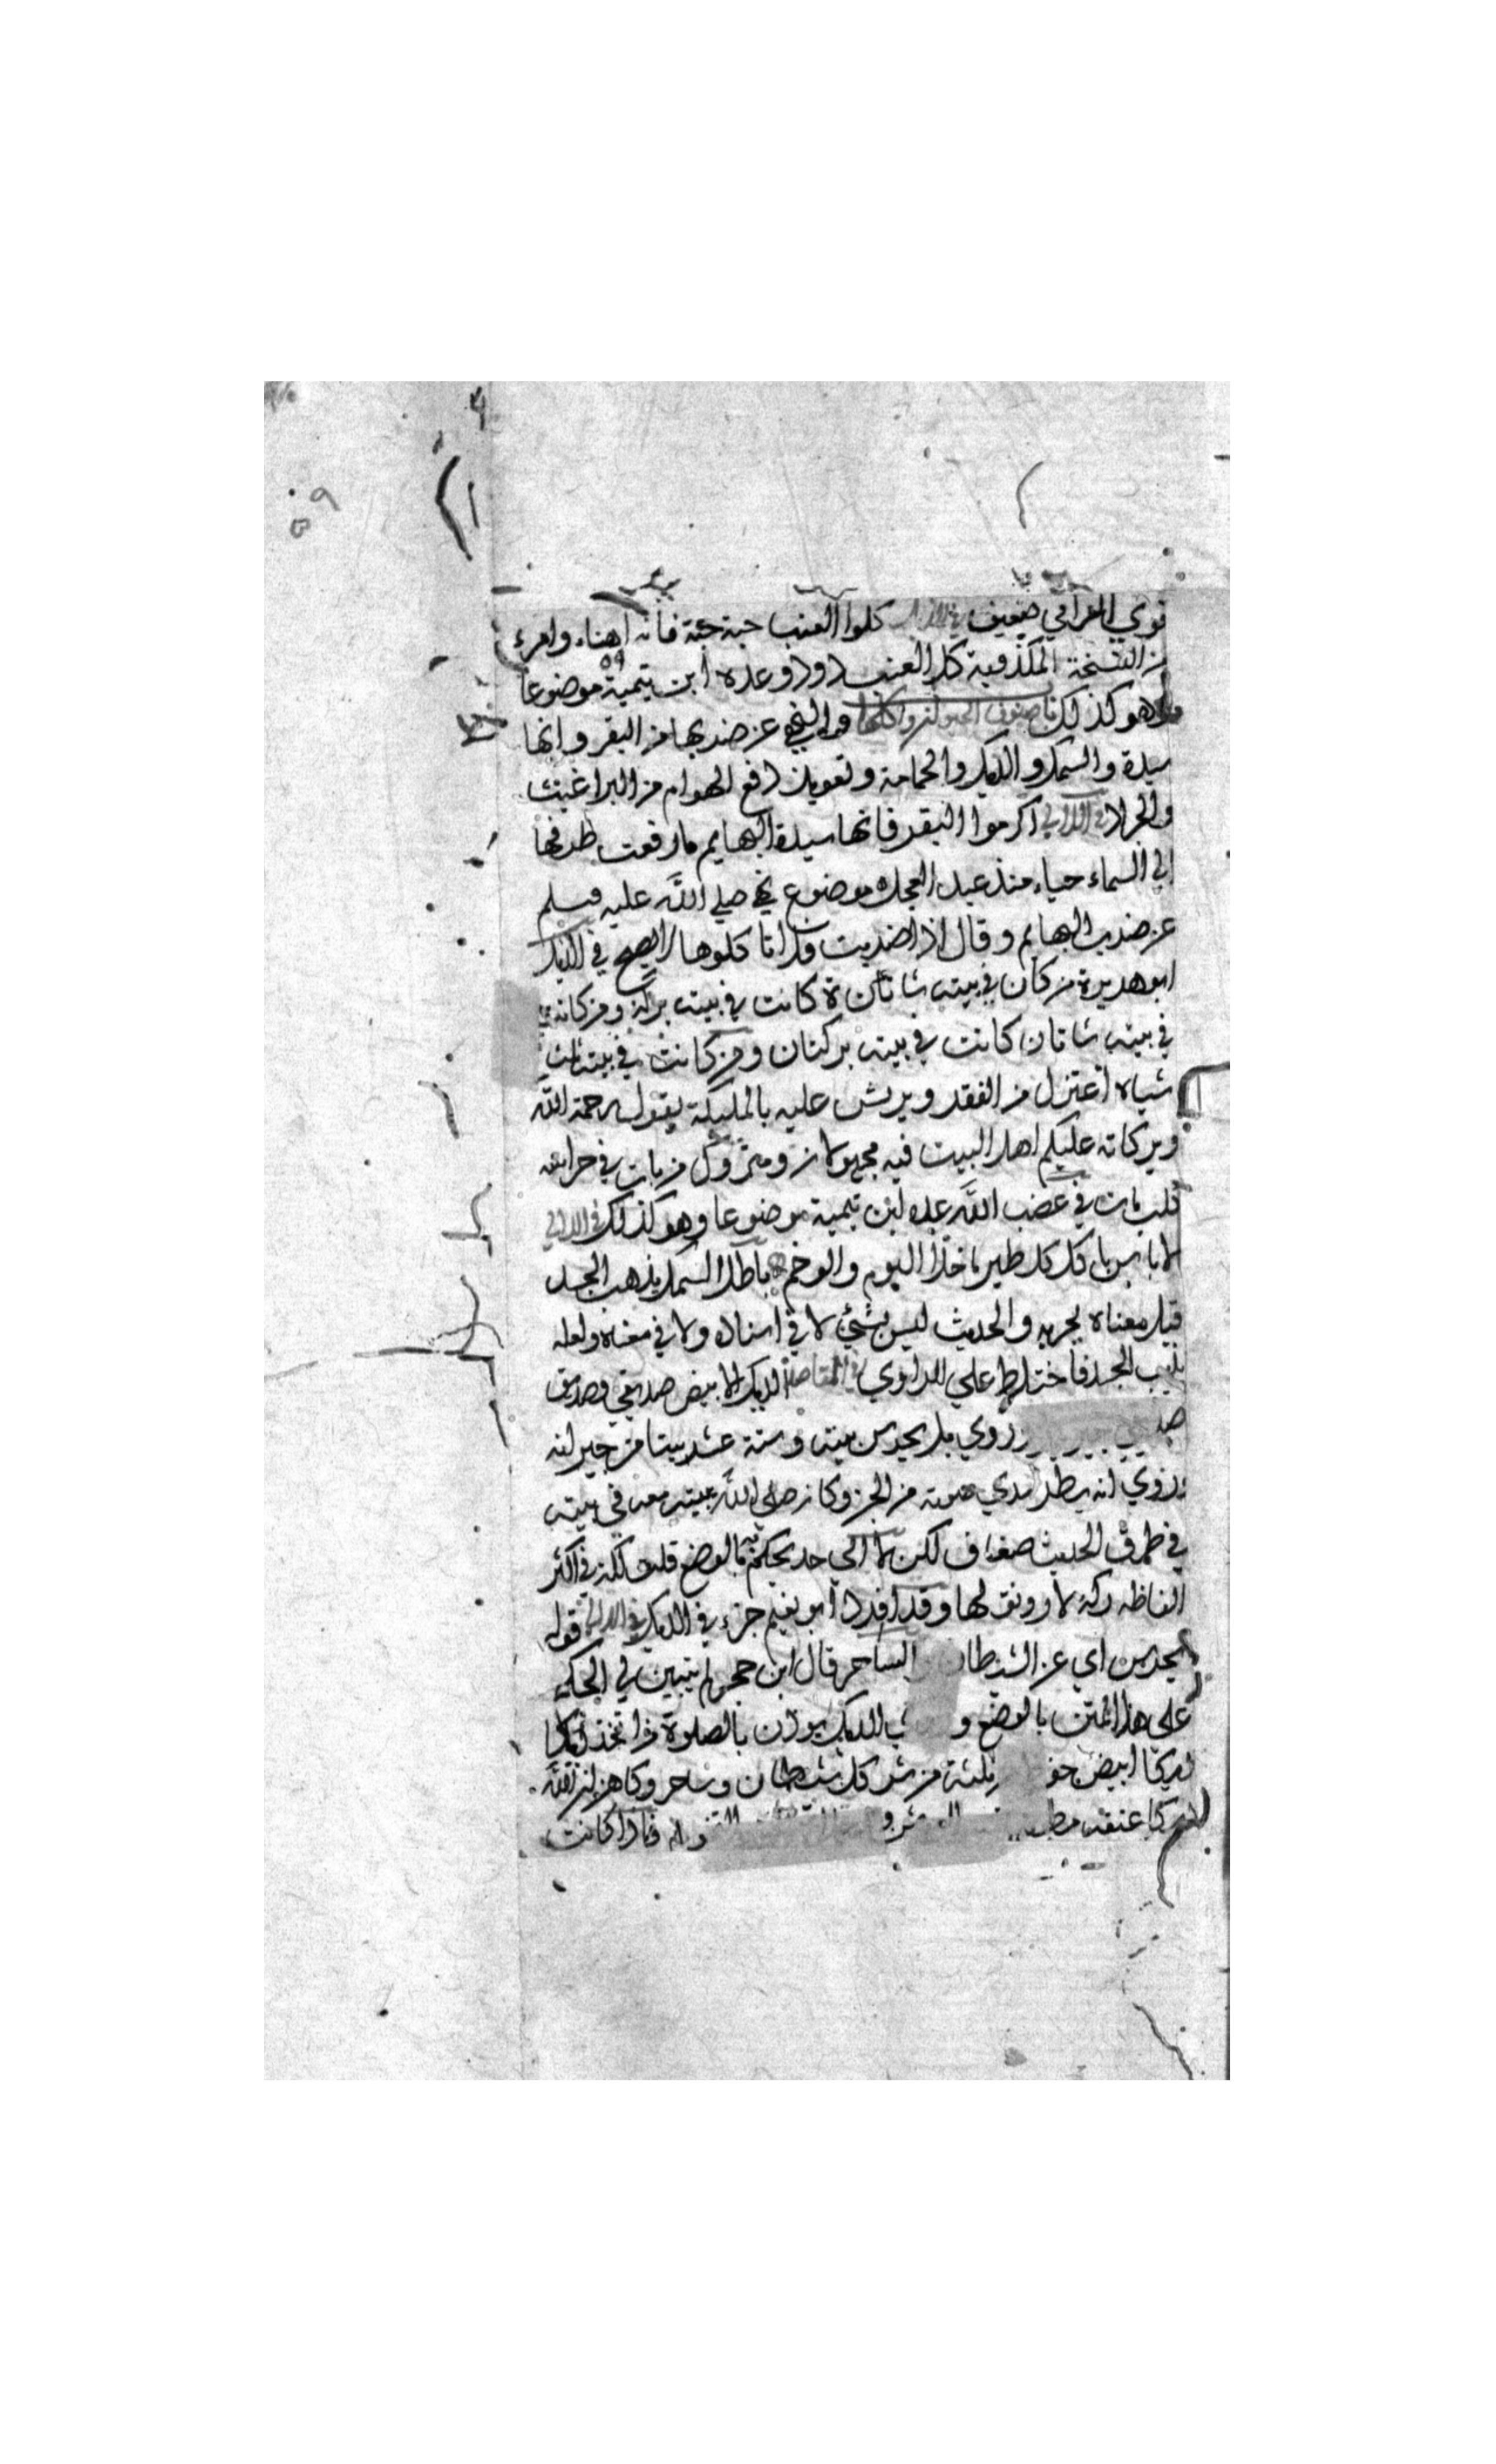 قوي العراقي ضعيف في الذيل كلوا العنب حبة حبة فانه اهناء وامرء
من النسخة المكذوبة كل العنب دو دو عده ابن تيمية موضوعا
وهو كذلك باب صنوف الحيوان واكلها والنهي عن ضربها من البقر وانها
سيدة والسمك والديك والحمامة وتعويذ دافع الهوام من البراغيث
والجراد في اللآلي اكرموا البقر فانها سيدة البهايم ما رفعت طرفها
الي السماء حياء منذ عبد العجل موضوع نهي صلي الله عليه وسلم
عن ضرب البهايم وقال اذا ضربت فلا تاكلوها لا يصح في الذيل
ابو هريرة من كان في بيته شاة كانت في بيته بركة ومن كانت
في بيته شاتان كانت في بيته بركتان ومن كانت في بيته ثلث
شياه اعتزل من الفقر ويرش عليه بالمليكة يقول رحمة الله
وبركاته عليكم اهل البيت فيه مجهولان ومتروك من بات في حراسة
كلب بات في غضب الله عده ابن تيمية موضوعا وهو كذلك في اللآلي
لا باس باكل كل طير ما خلا البوم والرخم باطل السمك يذهب الجسد
قيل معناه بجربه والحديث ليس بشئ لا في اسناده ولا في معناه ولعله
يذيب الجسد فاختلط علي الراوي في المقاصد الديك الابيض صديقي وصديق
روي بل يحرس بيته وستة عشر بيتا من جيرانه
وروي انه يطرد مدي صوته من الجن وكان صلى الله يبيته معه في بيته
في طرق الحديث ضعاف لكن لا الي حد يحكم عليه بالوضع قلت لكن في اكثر
الفاظه ركة لا رونق لها وقد افرد ابو نعيم جزء في الديك في الذيل قوله
يحرس اي عن الشيطان والساحر قال ابن حجر لم يتبين لي الحكم
على هذا المتن بالوضع و الديك يوذن بالصلوة من اتخذ ديكا
ديكا ابيض حفظ ثلثة من شر كل شيطان وساحر وكاهن
عنقه فاذا كانت